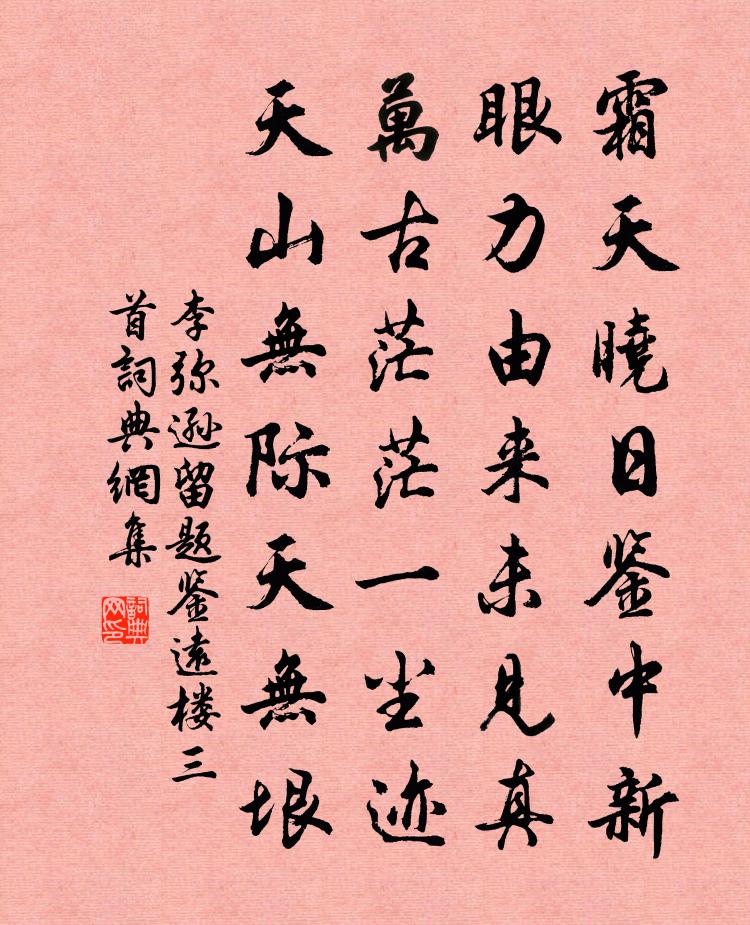 霜天曉日鉴中新
眼力由来未見真
萬古茫茫一尘迹
天山無际天無垠
李弥遜留題鉴遠楼三
首詞典網集
詞典
网印